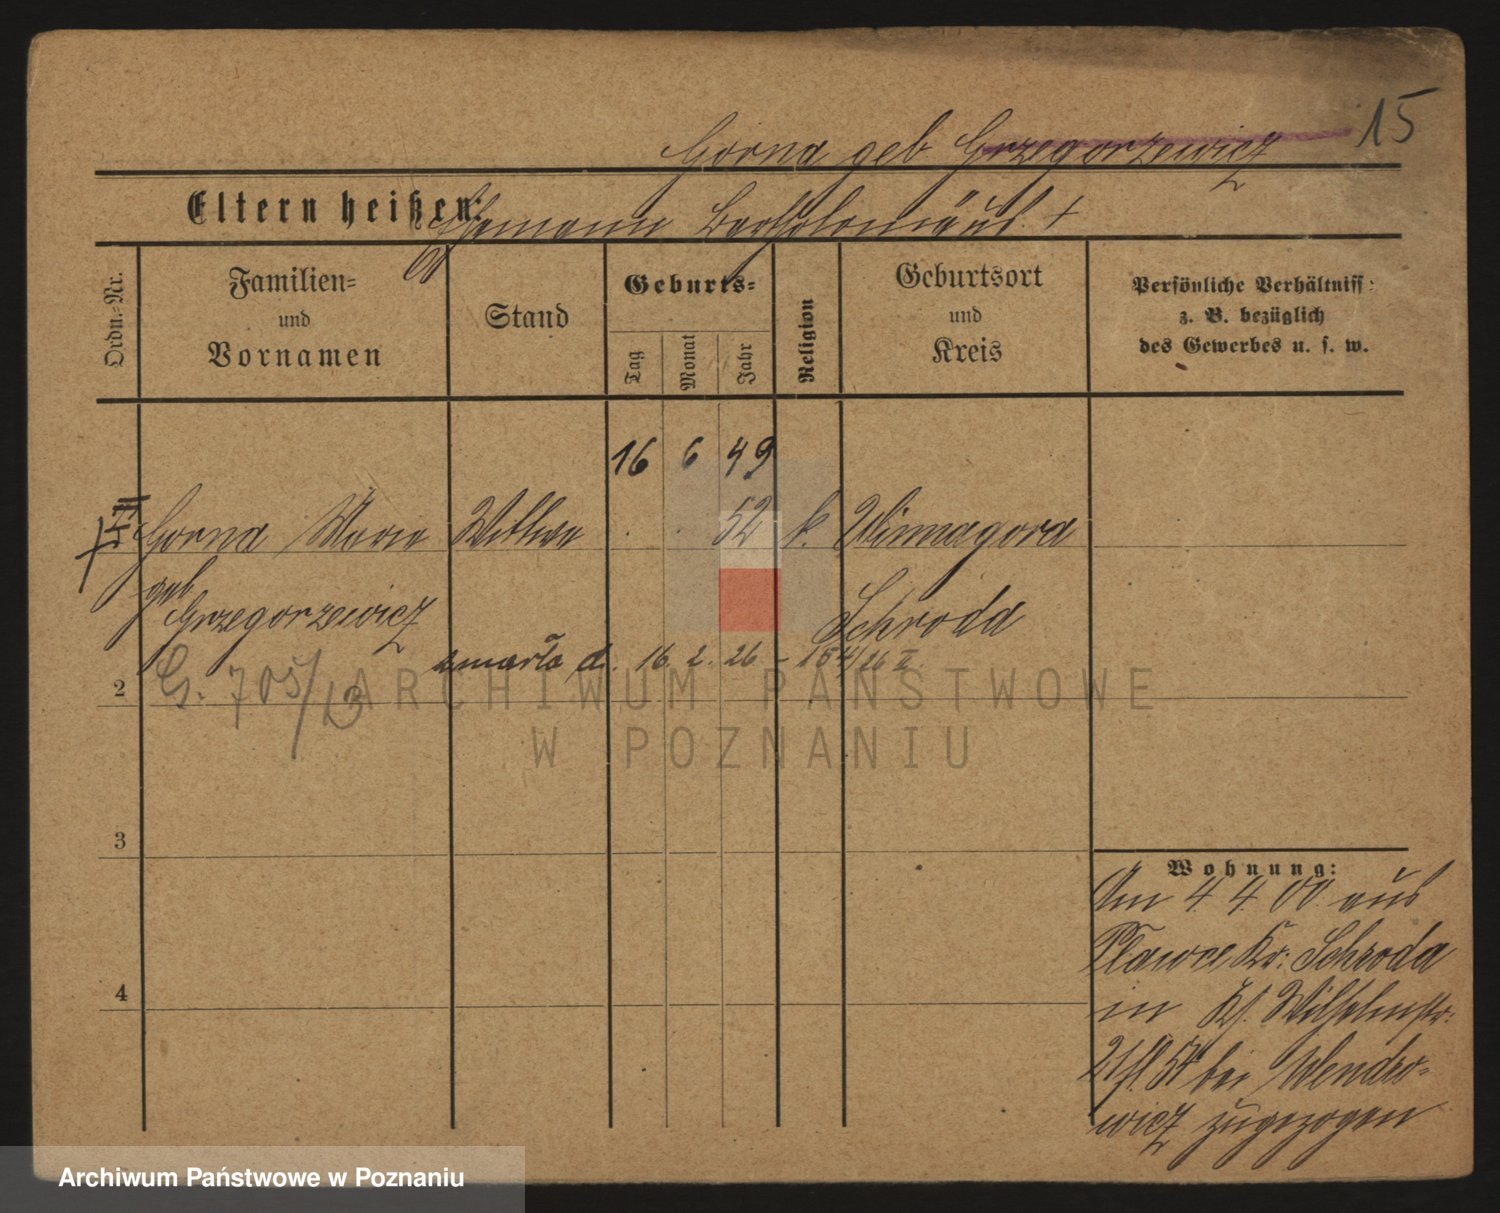 15
Górna geb Grzegorzewicz
Eltern heißen: Ehemann Bartholomäus †
Ordn.-Nr.
Familien-
und
Vornamen
Stand
Geburts-
Tag
Monat
Jahr
Religion
Geburtsort
und
Kreis
Persönliche Verhältniss:
z. B. bezüglich
des Gewerbes u. s. w.
16 6 49
Górna Maria Wittwe . . 52 k. Winnagora
geb
Grzegorzewicz Schroda
zmarła d. 16. 2. 26 - 154/26 II.
2 G. 705/13
ARCHIWUM PAŃSTWOWE
W POZNANIU
3
Wohnung:
Am 4. 4. 00 aus
Pławce Kr: Schroda
in Wilhelmstr.
bei Wendzo-
wicz zugezogen
4
Archiwum Państwowe w Poznaniu